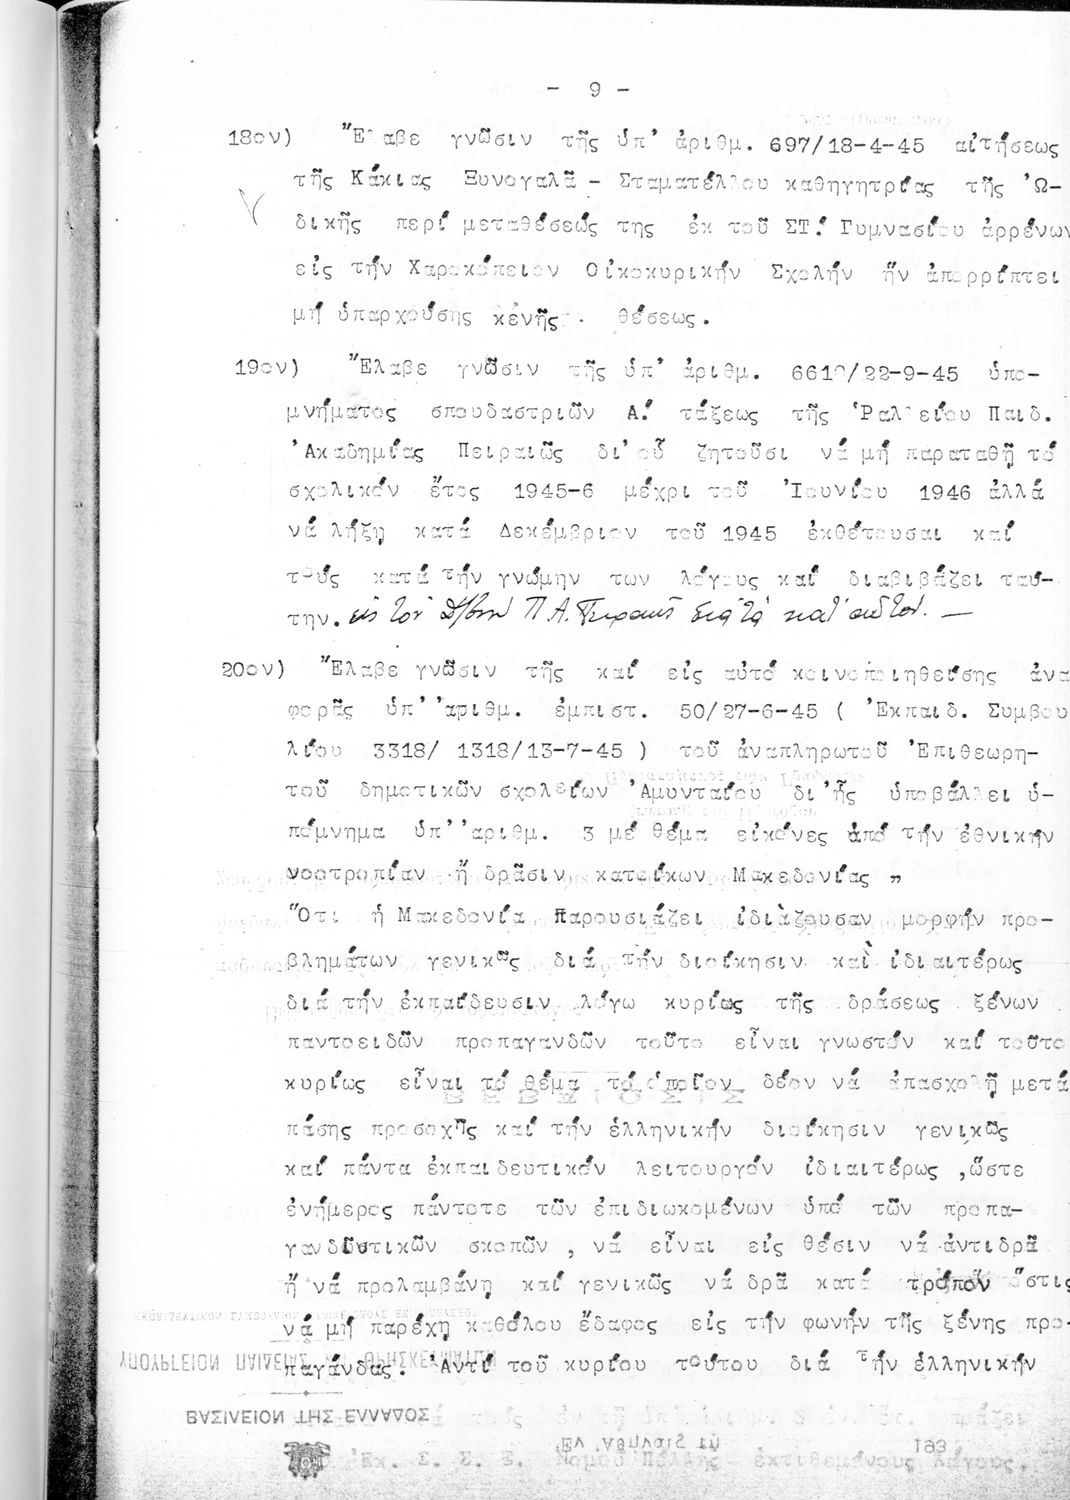 - 9 -
18ον) Ἔλαβε γνῶσιν τῆς ὑπ' ἀριθμ. 697/18-4-45 αἰτήσεως
τῆς Κάκιας Ξυνογαλᾶ - Σταματέλλου καθηγητρίας τῆς Ὠ-
δικῆς περί μεταθέσεώς της ἐκ τοῦ ΣΤ! Γυμνασίου ἀρρένων
εἰς τήν Χαροκόπειον Οἰκοκυρικήν Σχολήν ἥν ἀπορρίπτει
μή ὑπαρχούσης κενῆς θέσεως.
19ον) Ἔλαβε γνῶσιν τῆς ὑπ' ἀριθμ. 6619/22-9-45 ὑπο-
μνήματος σπουδαστριῶν Α! τάξεως τῆς Ῥαλλείου Παιδ.
Ἀκαδημίας Πειραιῶς δι' οὗ ζητοῦσι νά μή παραταθῇ τό
σχολικόν ἔτος 1945-6 μέχρι τοῦ Ἰουνίου 1946 ἀλλά
νά λήξῃ κατά Δεκέμβριον τοῦ 1945 ἐκθέτουσαι καί
τούς κατά τήν γνώμην των λόγους καί διαβιβάζει ταύ-
την. εἰς τόν Δ/ντήν Π.Α. Πειραιῶς διά τά κατ' αὐτόν. —
20ον) Ἔλαβε γνῶσιν τῆς καί εἰς αὐτό κοινοποιηθείσης ἀνα
φορᾶς ὑπ' ἀριθμ. ἐμπιστ. 50/27-6-45 ( Ἐκπαιδ. Συμβου
λίου 3318/ 1318/13-7-45 ) τοῦ ἀναπληρωτοῦ Ἐπιθεωρη-
τοῦ δημοτικῶν σχολείων Ἀμυνταίου δι' ἧς ὑποβάλλει ὑ-
πόμνημα ὑπ' ἀριθμ. 3 μέ θέμα εἰκόνες ἀπό τήν ἐθνικήν
νοοτροπίαν ἤ δρᾶσιν κατοίκων Μακεδονίας "
Ὅτι ἡ Μακεδονία παρουσιάζει ἰδιάζουσαν μορφήν προ-
βλημάτων γενικῶς διά τήν διοίκησιν καὶ ἰδιαιτέρως
διά τήν ἐκπαίδευσιν λόγω κυρίως τῆς δράσεως ξένων
παντοειδῶν προπαγανδῶν τοῦτο εἶναι γνωστόν καί τοῦτο
κυρίως εἶναι τό θέμα τό ὁποῖον δέον νά ἀπασχολῇ μετά
πάσης προσοχῆς καί τήν ἑλληνικήν διοίκησιν γενικῶς
καί πάντα ἐκπαιδευτικόν λειτουργόν ἰδιαιτέρως ,ὥστε
ἐνήμερος πάντοτε τῶν ἐπιδιωκομένων ὑπό τῶν προπα-
γανδιστικῶν σκοπῶν , νά εἶναι εἰς θέσιν νά ἀντιδρᾶ
ἤ νά προλαμβάνῃ καί γενικῶς νά δρᾶ κατά τρόπον ὅστις
νά μή παρέχῃ καθόλου ἔδαφος εἰς τήν φωνήν τῆς ξένης προ-
παγάνδας. Ἀντί τοῦ κυρίου τούτου διά τήν ἑλληνικήν
ΥΠΟΥΡΓΕΙΟΝ ΠΑΙΔΕΙΑΣ ΚΑΙ ΘΡΗΣΚΕΥΜΑΤΩΝ
ΒΑΣΙΛΕΙΟΝ ΤΗΣ ΕΛΛΑΔΟΣ